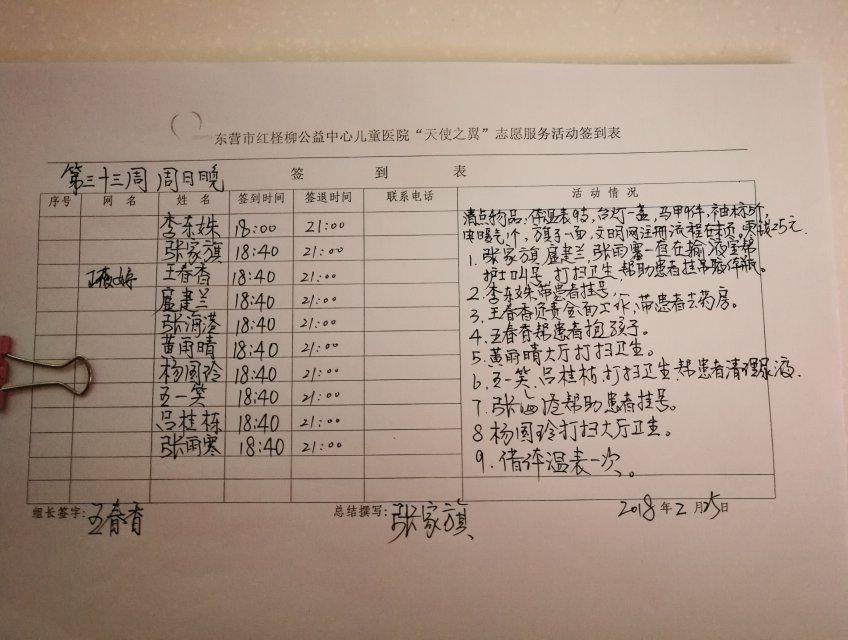 东营市红柽柳公益中心儿童医院“天使之翼”志愿服务活动签到表
第三十三周 周日晚 签到表
序号 网名 姓名 签到时间 签退时间 联系电话 活动情况
李东姝 18:00 21:00
张家旗 18:40 21:00
王春香 18:40 21:00
扈建兰 18:40 21:00
张海港 18:40 21:00
黄雨晴 18:40 21:00
杨国玲 18:40 21:00
王一笑 18:40 21:00
吕桂栋 18:40 21:00
张雨寒 18:40 21:00
清点物品:体温表9支,台灯一盏,马甲9件,袖标5个,
电暖气1个,方旗子一面,文明网注册流程在本夹,零钱25元.
1.张家旗 扈建兰,张雨寒一直在输液室帮
护士叫号,打扫卫生,帮助患者挂吊瓶
2.李东姝带患者挂号,
3.王春香负责全面工作,带患者去药房。
4.王春香帮患者抱孩子。
5.黄雨晴大厅打扫卫生。
6.王一笑、吕桂栋,打扫卫生.帮患者清理尿液.
7.张海港帮助患者挂号。
8 杨国玲打扫大厅卫生。
9.借体温表一次。
组长签字:王春香 总结撰写:张家旗 2018年2月25日